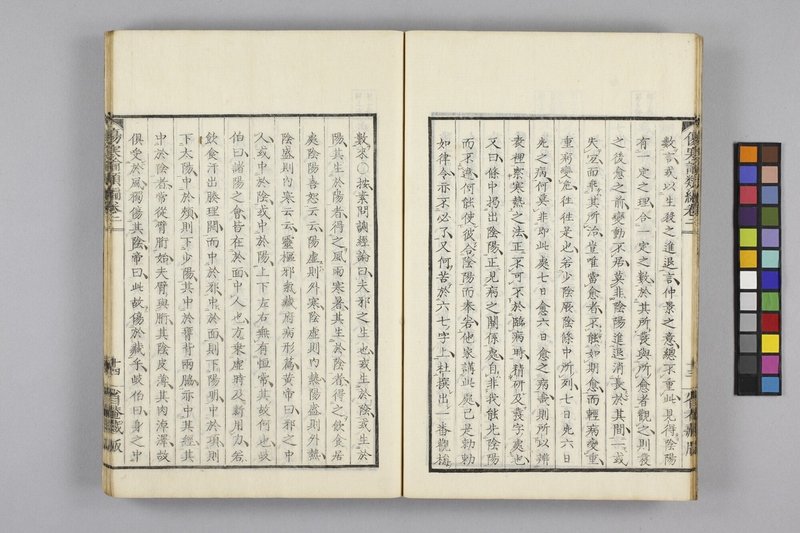 數言或以生殺之進退言仲景之意總不重此見得陰陽
有一定之理合一定之數於其所發與所愈者觀之則發
之後愈之前變動不居莫非陰陽進退消長於其間一或
失宜而乖其所治豈唯當愈者不能如期愈而輕病變重
重病變危往往是也若少陰厥陰條中所列七日先六日
先之病何莫非即此處七日愈六日愈之病哉則所以辨
表裡察寒熱之法正不可不於臨病時精研及發字處也
又曰條中揭出陰陽正見病之關係處自非我能先陰陽
而不違何能使彼合陰陽而奉若他家講此處已是勃勃
如律令亦不必了又何苦於六七字上杜撰出一番觀梅
數來○按素問調經論曰夫邪之生也或生於陰或生於
陽其生於陽者得之風雨寒暑其生於陰者得之飲食居
處陰陽喜怒云云陽虛則外寒陰虛則內熱陽盛則外熱
陰盛則內寒云云靈樞邪氣藏府病形篇黃帝曰邪之中
人或中於陰或中於陽上下左右無有恒常其故何也岐
伯曰諸陽之會皆在於面中人也方乘虛時及新用力若
飲食汗出腠理開而中於邪中於面則下陽明中於項則
下太陽中於頰則下少陽其中於膺背兩脇亦中其經其
中於陰者常從臂胻始夫臂與胻其陰皮薄其肉淖澤故
俱受於風獨傷其陰帝曰此故傷於藏乎岐伯曰身之中
傷寒論類編卷二
十四